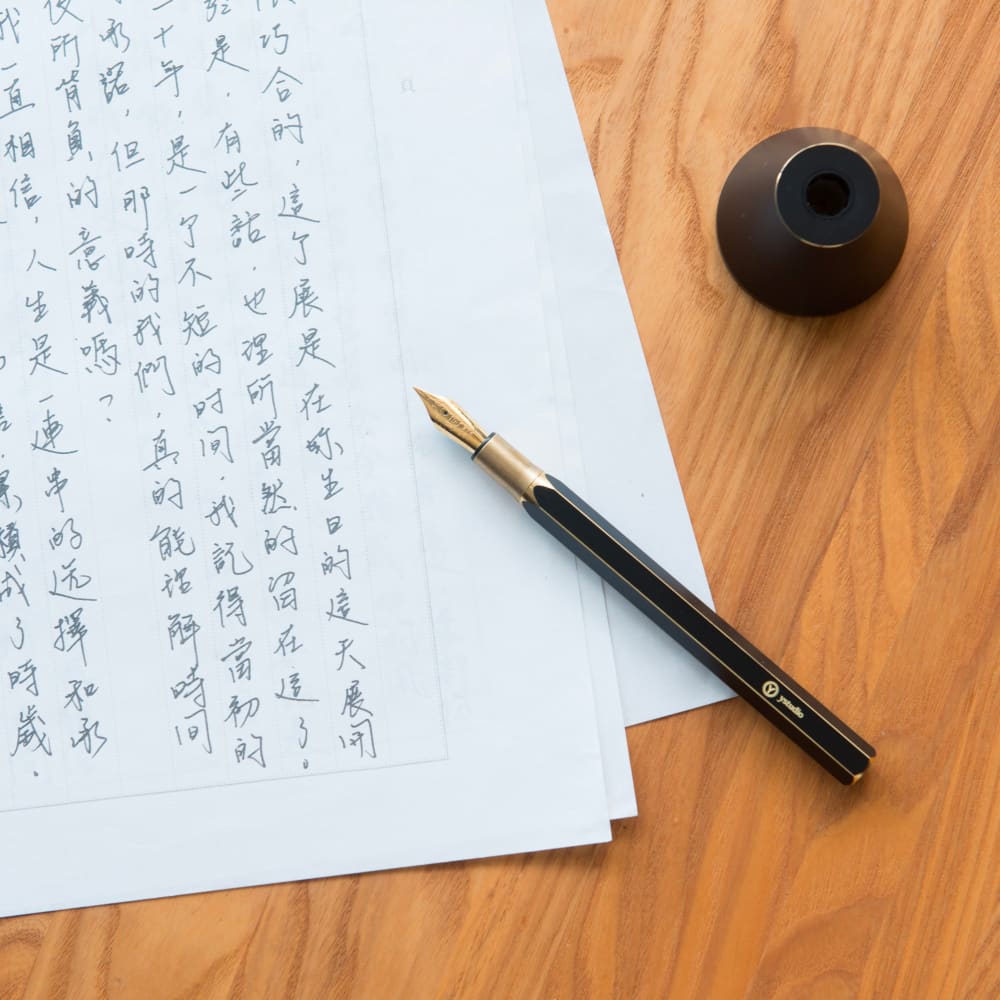 很巧合的，這個展是在你生日的這天展開
於是，有些話，也理所當然的留在這了。
二十年，是一個不短的时间，我記得當初的
承諾，但那時的我們，真的能理解時间
後所背負的意義嗎？
我一直相信，人生是一連串的选擇和承
累積成了時歲，
ystudio